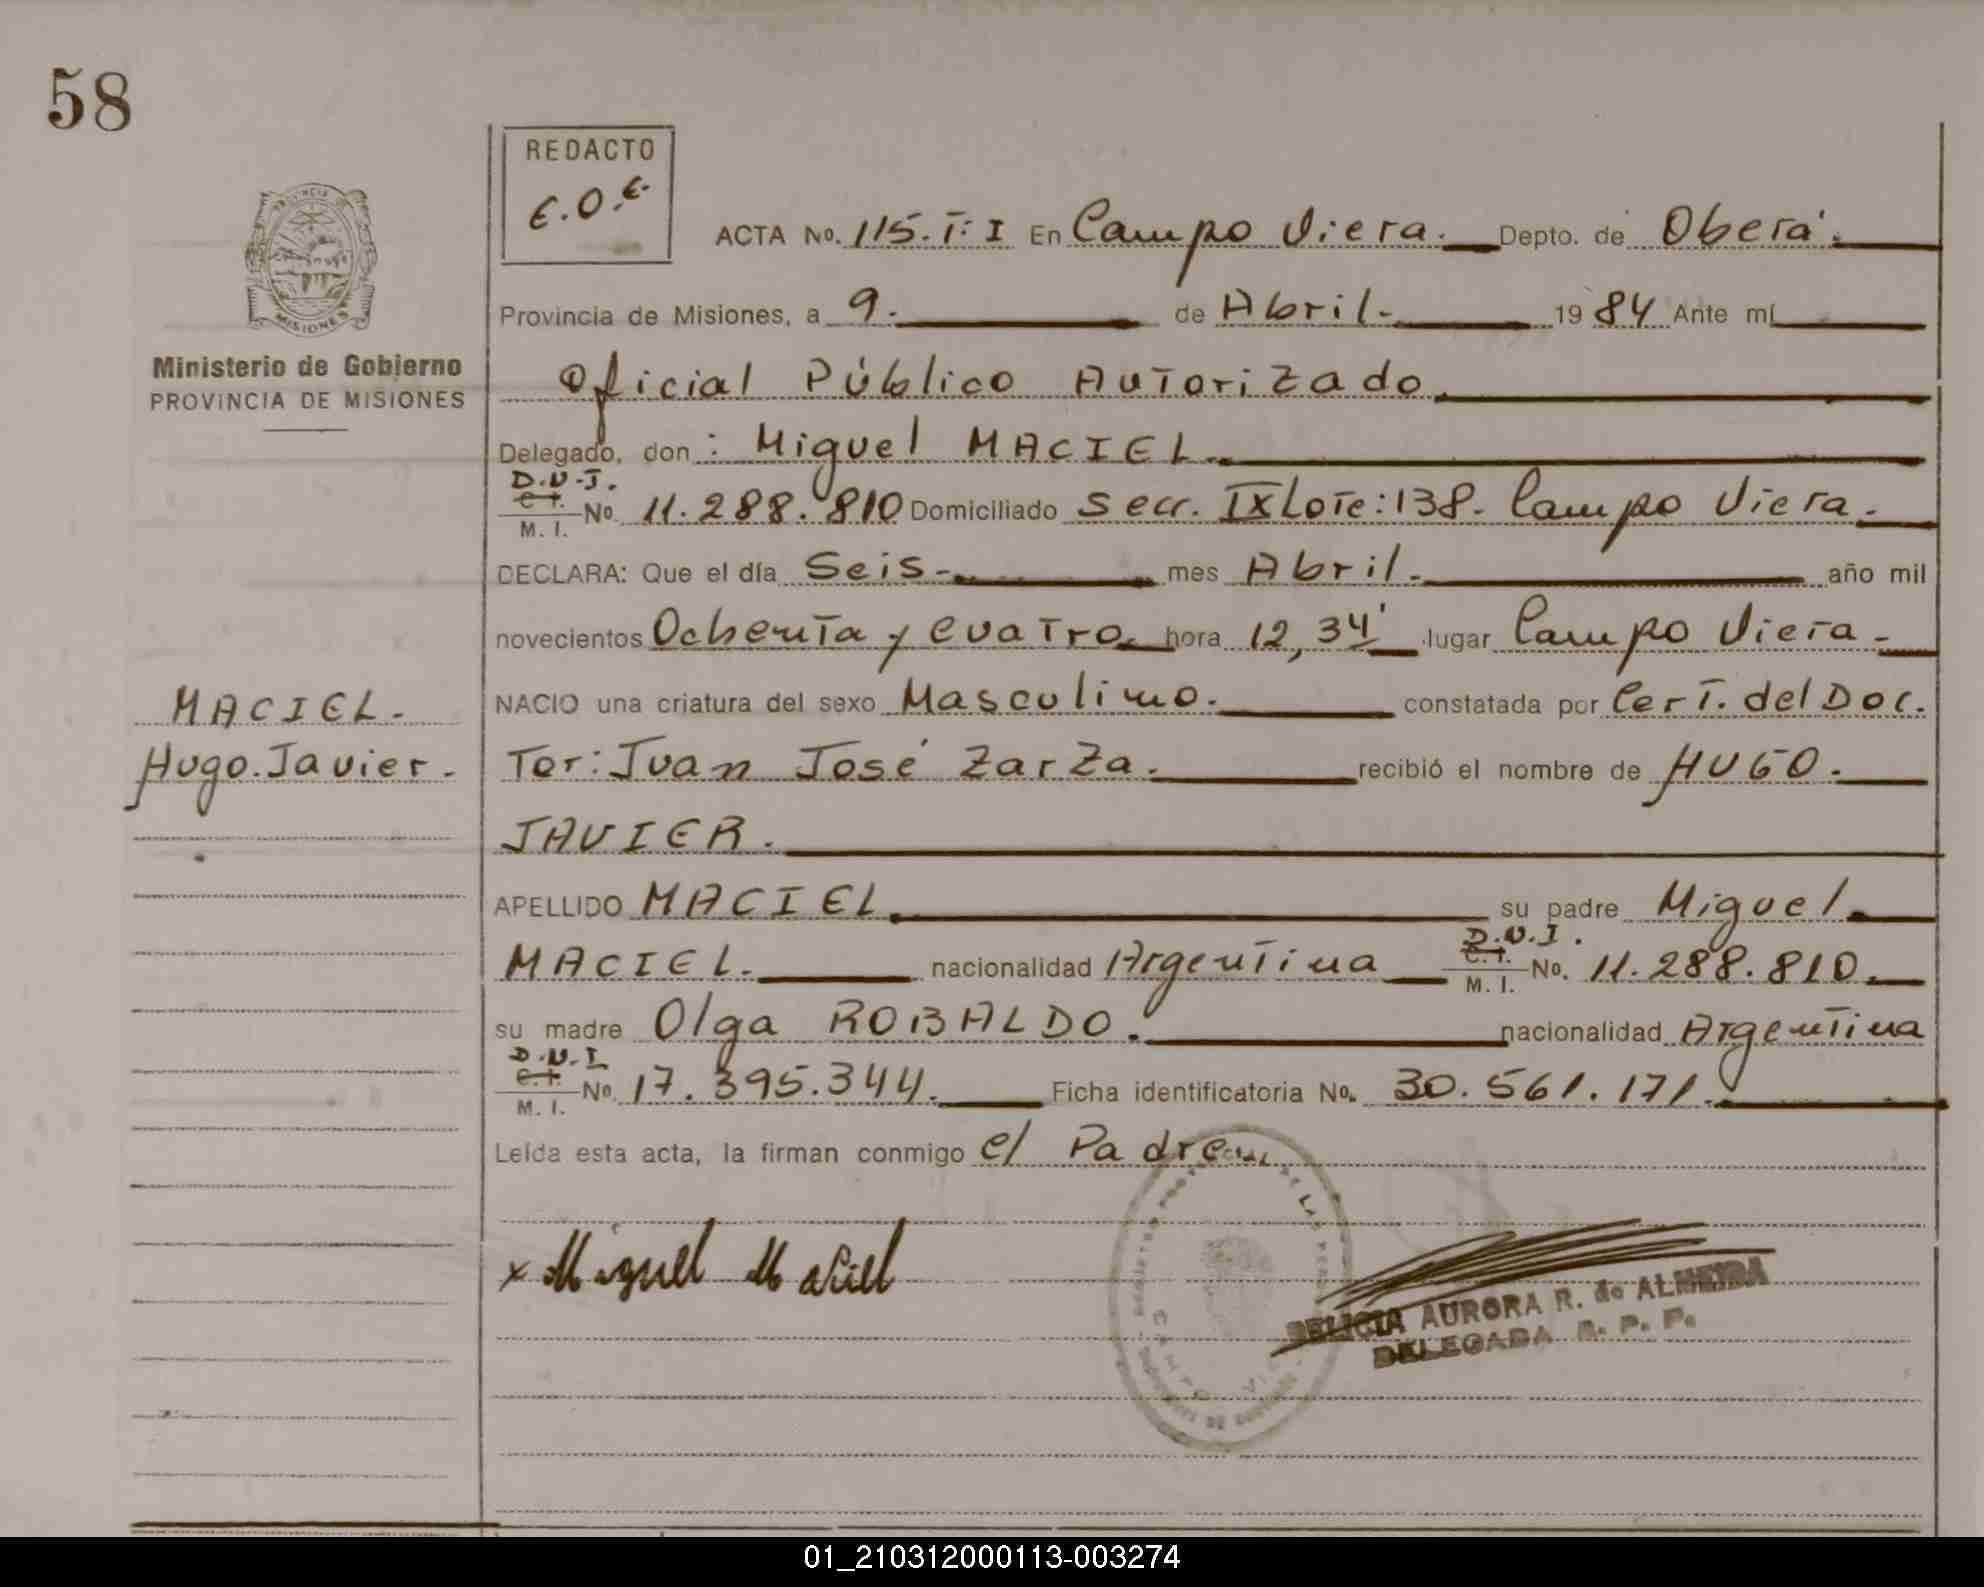 58
REDACTO
E.O.E.
PROVINCIA DE
MISIONES
Ministerio de Gobierno
PROVINCIA DE MISIONES
ACTA No. 115.T:I En Campo Viera. Depto. de Oberá.
Provincia de Misiones, a 9. de Abril. 1984 Ante mí
Oficial Público Autorizado
Delegado, don : Miguel MACIEL.
D.N.I.
C.I.
M. I. No. 11.288.810 Domiciliado Secc. IX Lote:138. Campo Viera.
DECLARA: Que el día Seis. mes Abril. año mil
novecientos Ochenta y cuatro. hora 12,34' lugar Campo Viera.
NACIO una criatura del sexo Masculino. constatada por Cert. del Doc.
Tor: Juan José Zarza. recibió el nombre de HUGO.
JAVIER.
MACIEL.
Hugo. Javier.
APELLIDO MACIEL su padre Miguel
MACIEL. nacionalidad Argentina D.N.I. C.I. M. I. No. 11.288.810.
su madre Olga ROBALDO. nacionalidad Argentina
D.N.I.
C.I.
M. I. No. 17.395.344. Ficha identificatoria No. 30.561.171.
Leída esta acta, la firman conmigo el Padre
x Miguel Maciel
DELICIA AURORA R. de ALMEIDA
DELEGADA R. P. P.
01_210312000113-003274